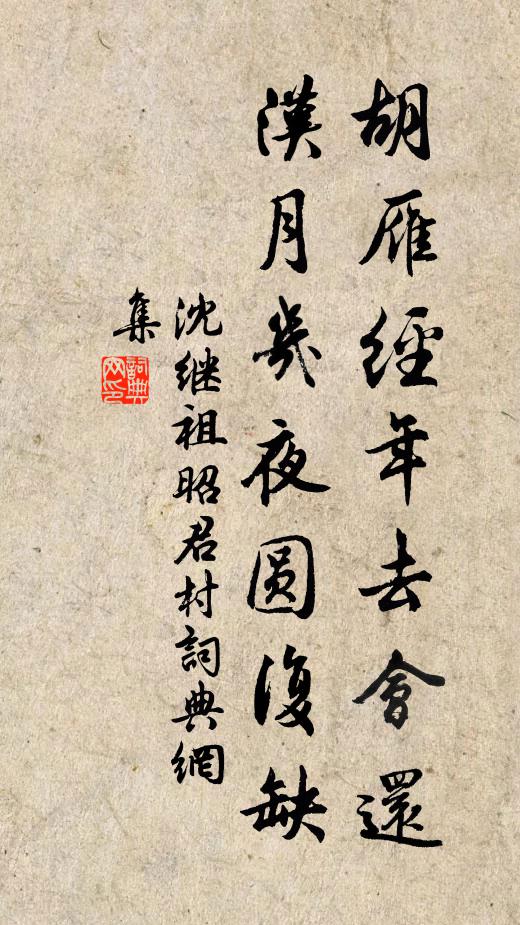 胡雁經年去會還
漢月幾夜圆復缺
沈继祖昭君村詞典網
集
詞典網印